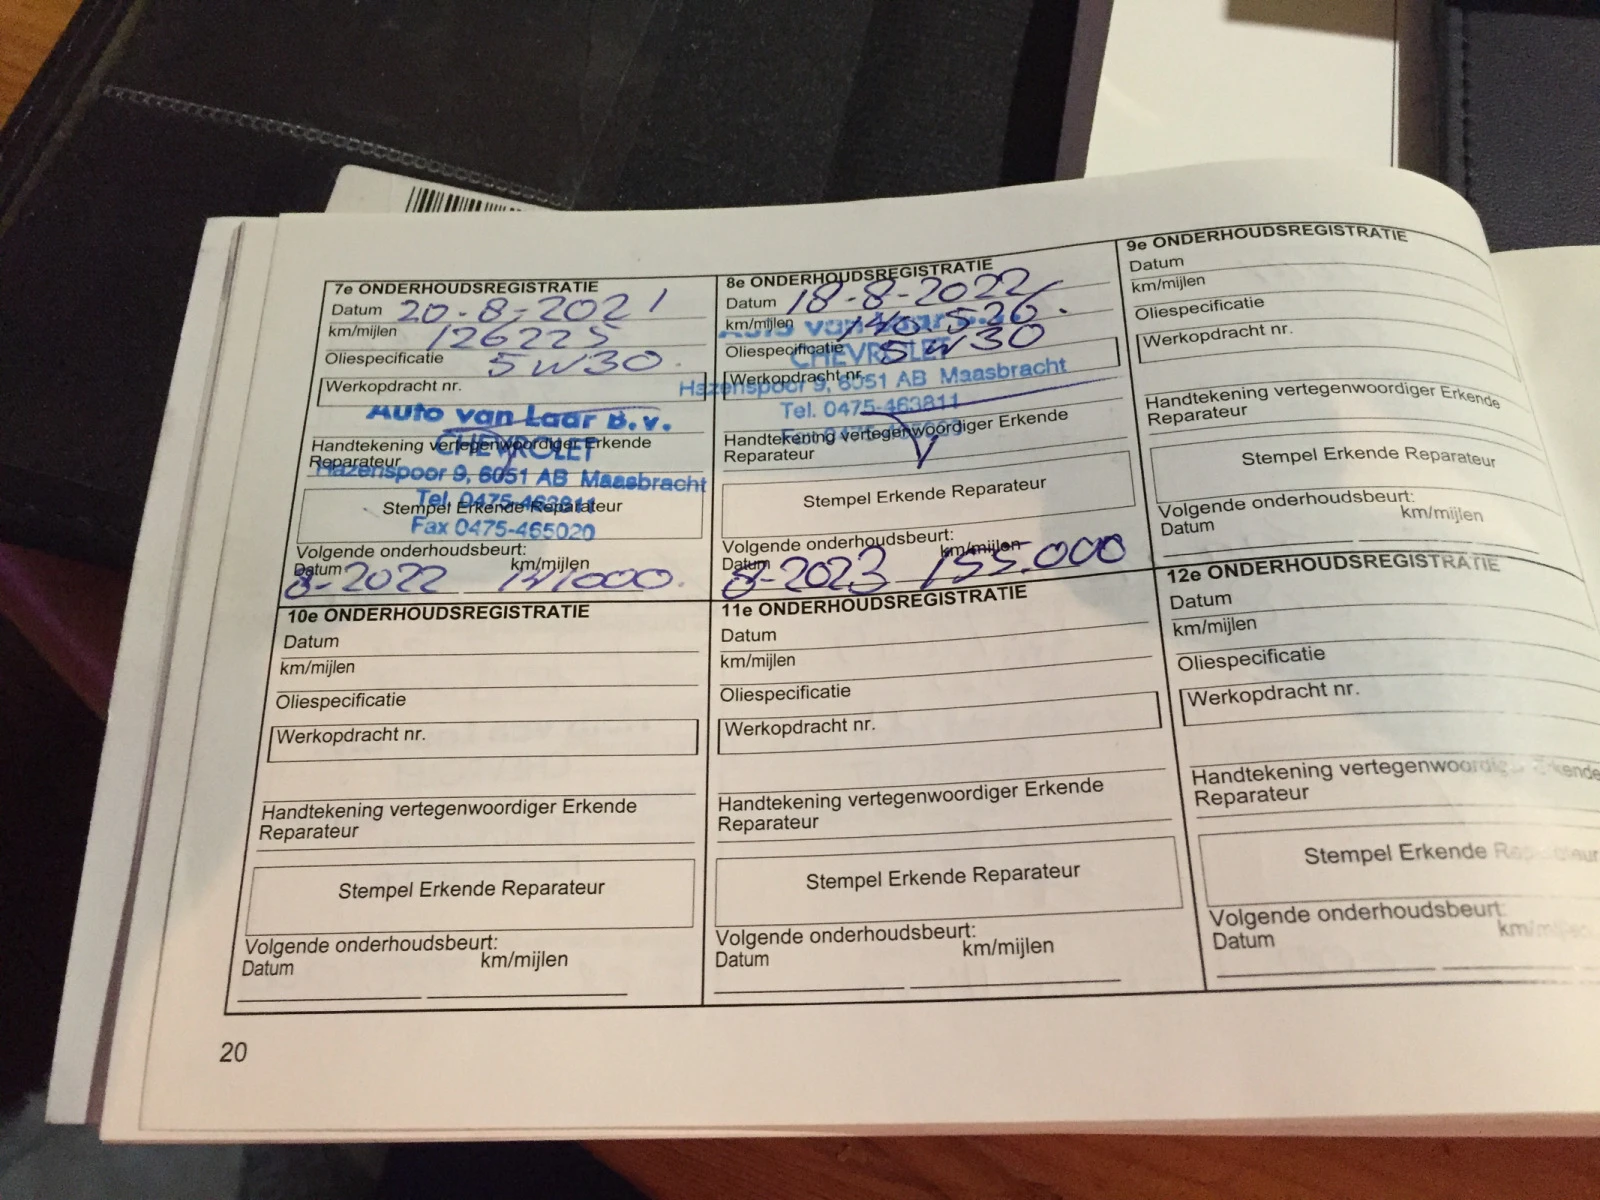 7e ONDERHOUDSREGISTRATIE
Datum 20-8-2021
km/mijlen 126225
Oliespecificatie 5W30.
Werkopdracht nr.
Auto van Laar B.v.
CHEVROLET
Handtekening vertegenwoordiger Erkende
Reparateur
Hazenspoor 9, 6051 AB Maasbracht
Tel. 0475-463811
Stempel Erkende Reparateur
Fax 0475-465020
Volgende onderhoudsbeurt:
Datum km/mijlen
8-2022 141000.
8e ONDERHOUDSREGISTRATIE
Datum 18-8-2022
km/mijlen 140.526.
Auto van Laar
Oliespecificatie 5W30
CHEVROLET
Werkopdracht nr.
Hazenspoor 9, 6051 AB Maasbracht
Tel. 0475-463811
Handtekening vertegenwoordiger Erkende
Reparateur
Stempel Erkende Reparateur
Volgende onderhoudsbeurt:
Datum km/mijlen
8-2023 155.000
9e ONDERHOUDSREGISTRATIE
Datum
km/mijlen
Oliespecificatie
Werkopdracht nr.
Handtekening vertegenwoordiger Erkende
Reparateur
Stempel Erkende Reparateur
Volgende onderhoudsbeurt:
Datum km/mijlen
10e ONDERHOUDSREGISTRATIE
Datum
km/mijlen
Oliespecificatie
Werkopdracht nr.
Handtekening vertegenwoordiger Erkende
Reparateur
Stempel Erkende Reparateur
Volgende onderhoudsbeurt:
Datum km/mijlen
11e ONDERHOUDSREGISTRATIE
Datum
km/mijlen
Oliespecificatie
Werkopdracht nr.
Handtekening vertegenwoordiger Erkende
Reparateur
Stempel Erkende Reparateur
Volgende onderhoudsbeurt:
Datum km/mijlen
12e ONDERHOUDSREGISTRATIE
Datum
km/mijlen
Oliespecificatie
Werkopdracht nr.
Handtekening vertegenwoordiger Erkende
Reparateur
Stempel Erkende
Volgende onderhoudsbeurt:
Datum km/mijlen
20